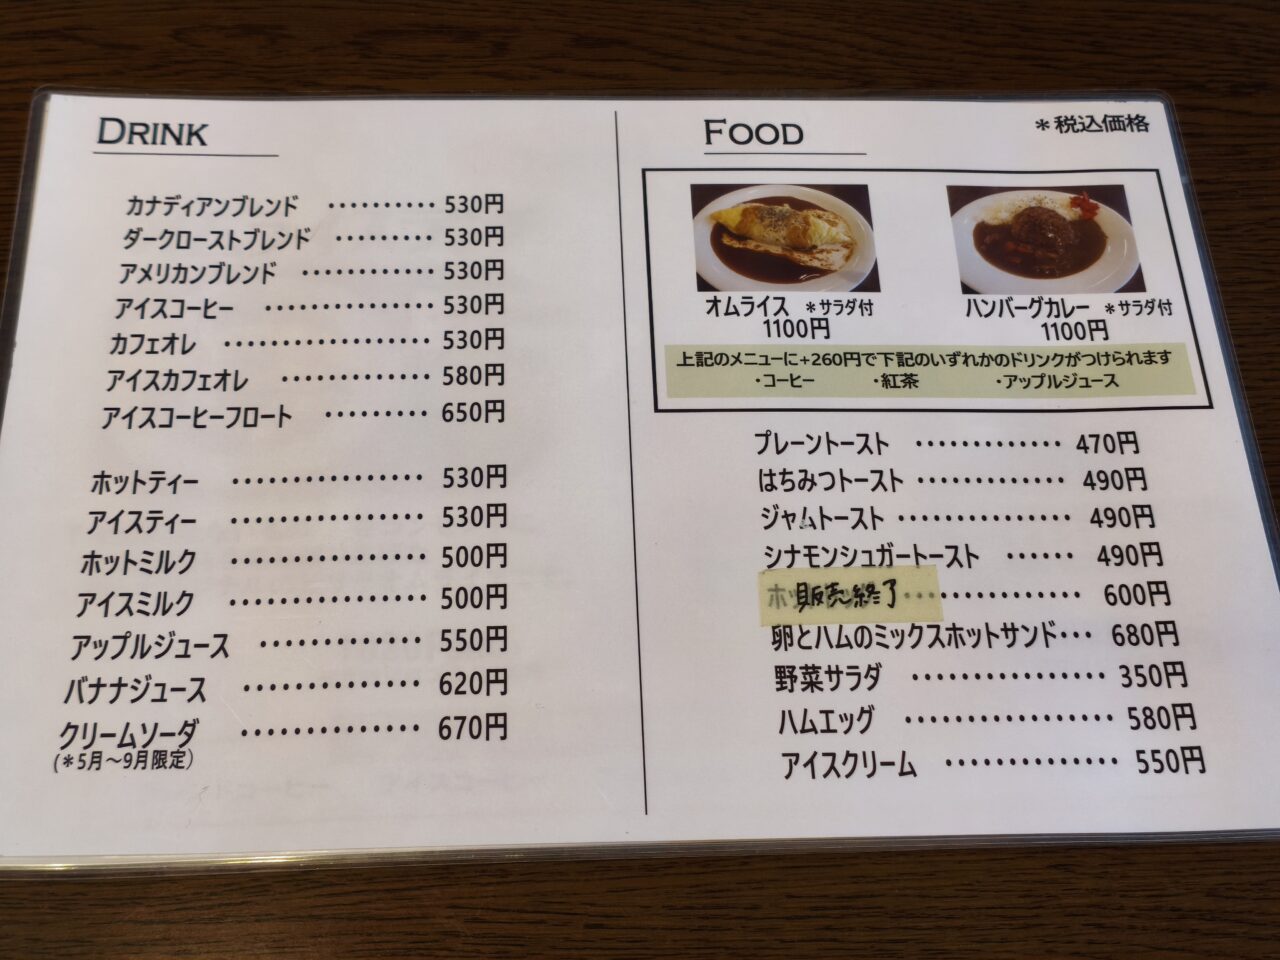 DRINK
カナディアンブレンド ・・・・・・・・・・ 530円
ダークローストブレンド ・・・・・・・・・ 530円
アメリカンブレンド ・・・・・・・・・・・・ 530円
アイスコーヒー ・・・・・・・・・・・・・・・ 530円
カフェオレ ・・・・・・・・・・・・・・・・・・ 530円
アイスカフェオレ ・・・・・・・・・・・・・ 580円
アイスコーヒーフロート ・・・・・・・・・ 650円
ホットティー ・・・・・・・・・・・・・・・・ 530円
アイスティー ・・・・・・・・・・・・・・・・ 530円
ホットミルク ・・・・・・・・・・・・・・・・ 500円
アイスミルク ・・・・・・・・・・・・・・・・ 500円
アップルジュース ・・・・・・・・・・・・・ 550円
バナナジュース ・・・・・・・・・・・・・・ 620円
クリームソーダ ・・・・・・・・・・・・・・ 670円
(＊5月～9月限定)
FOOD ＊税込価格
オムライス ＊サラダ付 ハンバーグカレー ＊サラダ付
1100円 1100円
上記のメニューに+260円で下記のいずれかのドリンクがつけられます
・コーヒー ・紅茶 ・アップルジュース
プレーントースト ・・・・・・・・・・・・・ 470円
はちみつトースト ・・・・・・・・・・・・・ 490円
ジャムトースト ・・・・・・・・・・・・・・・ 490円
シナモンシュガートースト ・・・・・・ 490円
販売終了 ・・・・・・・・・・・・・・・ 600円
卵とハムのミックスホットサンド・・・ 680円
野菜サラダ ・・・・・・・・・・・・・・・・・ 350円
ハムエッグ ・・・・・・・・・・・・・・・・・・ 580円
アイスクリーム ・・・・・・・・・・・・・・・ 550円